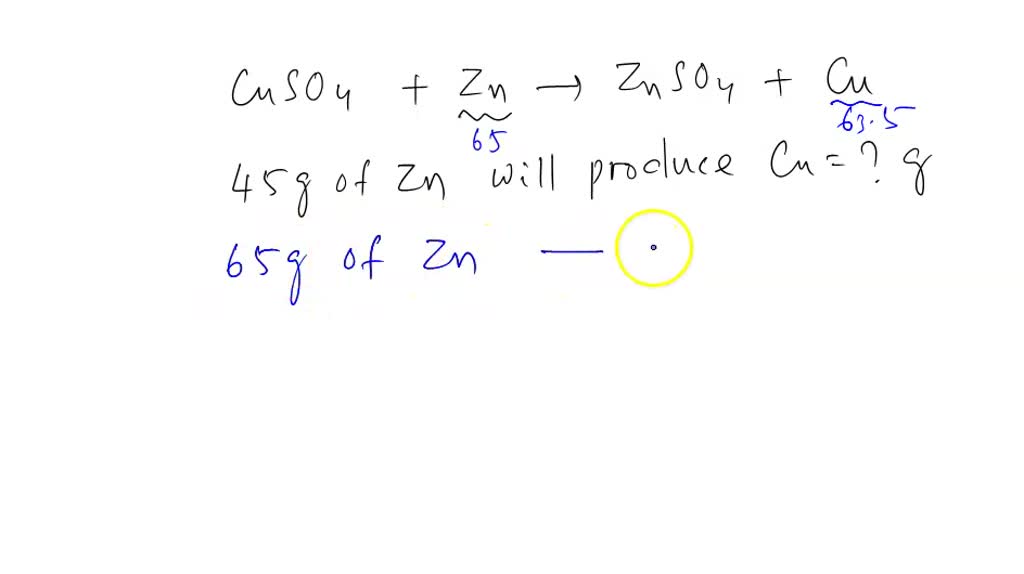 CuSO4 + Zn → ZnSO4 + Cu
65 63.5
45g of Zn will produce Cu = ? g
65g of Zn —